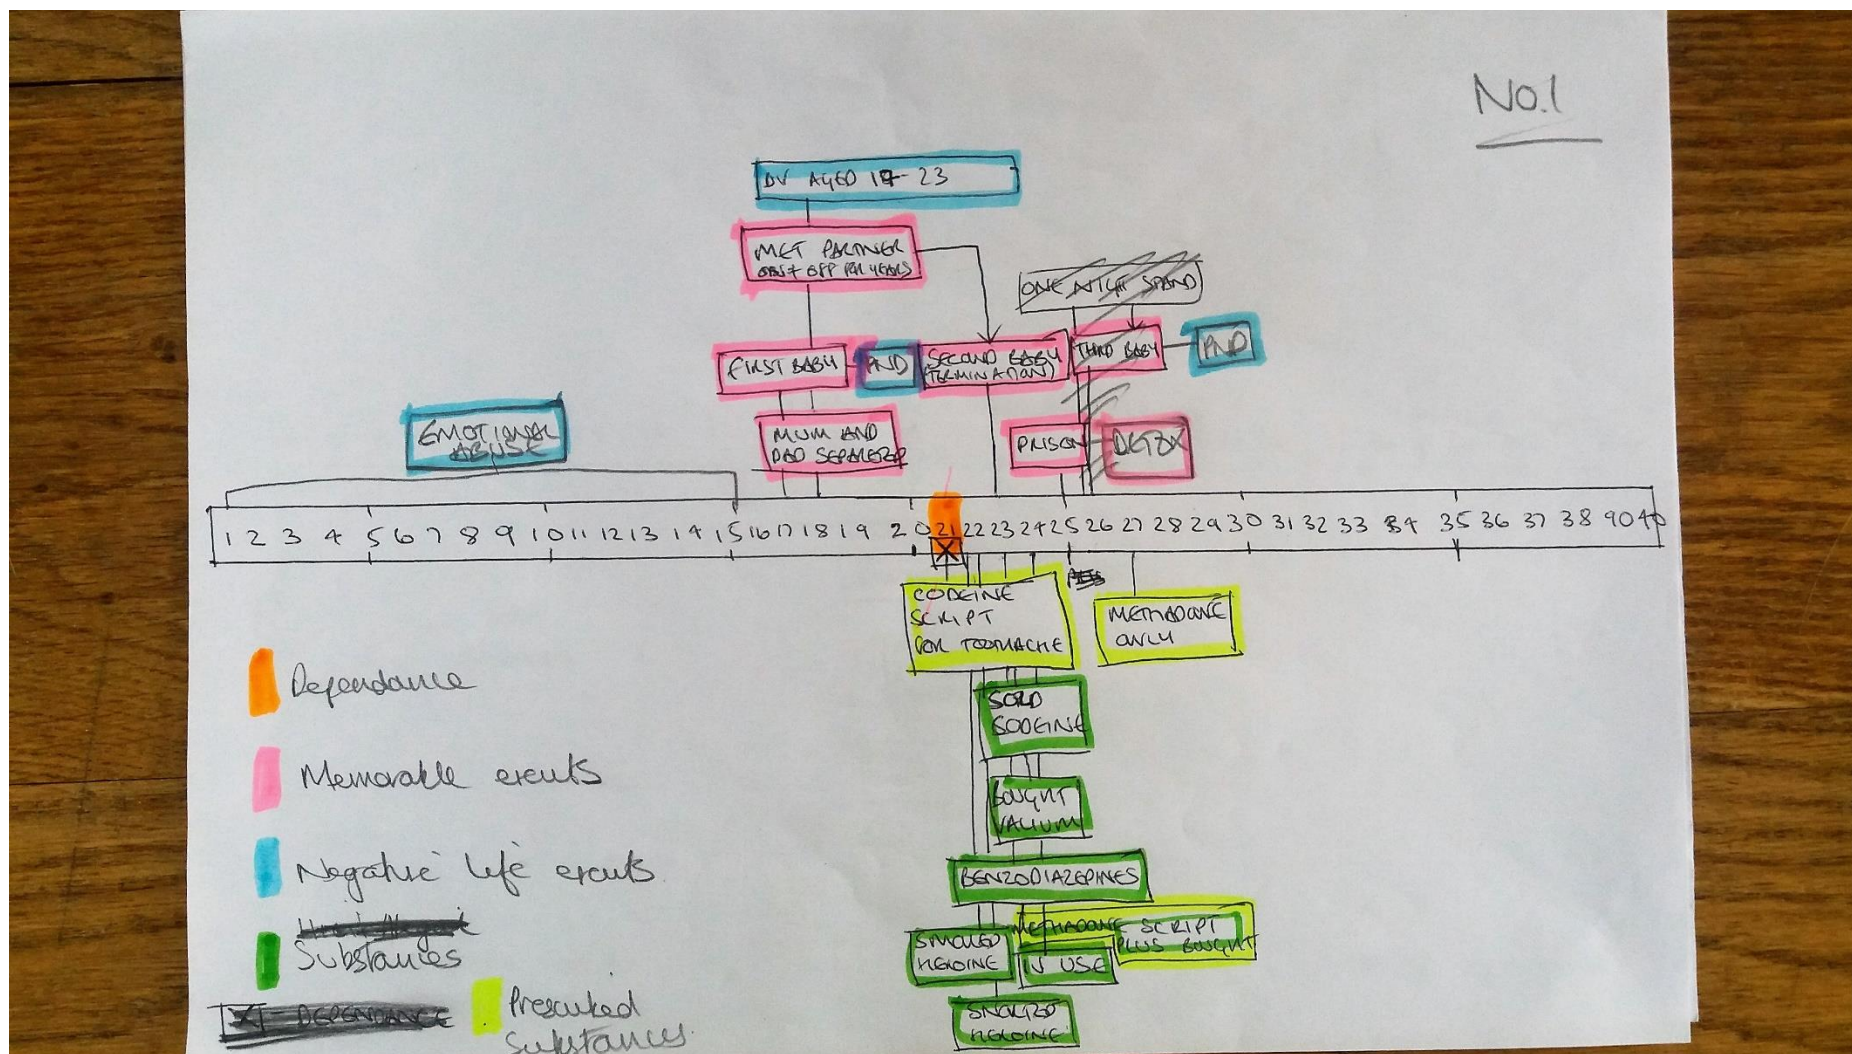 No.1
DV AGED 17-23
MET PARTNER
ON + OFF FOR YEARS
ONE NIGHT STAND
FIRST BABY
PND
SECOND BABY
(TERMINATION)
THIRD BABY
PND
EMOTIONAL
ABUSE
MUM AND
DAD SEPARATED
PRISON
DETOX
1 2 3 4 5 6 7 8 9 10 11 12 13 14 15 16 17 18 19 20 21 22 23 24 25 26 27 28 29 30 31 32 33 34 35 36 37 38 90 40
X
CODEINE
SCRIPT
FOR TOOTHACHE
METHADONE
ONLY
SOLD
CODEINE
BOUGHT
VALIUM
BENZODIAZEPINES
SMOKED
HEROINE
METHADONE SCRIPT
PLUS BOUGHT
IV USE
SNORTED
HEROINE
Dependance
Memorable events
Negative life events
Substances
X - DEPENDANCE
Prescribed
Substances